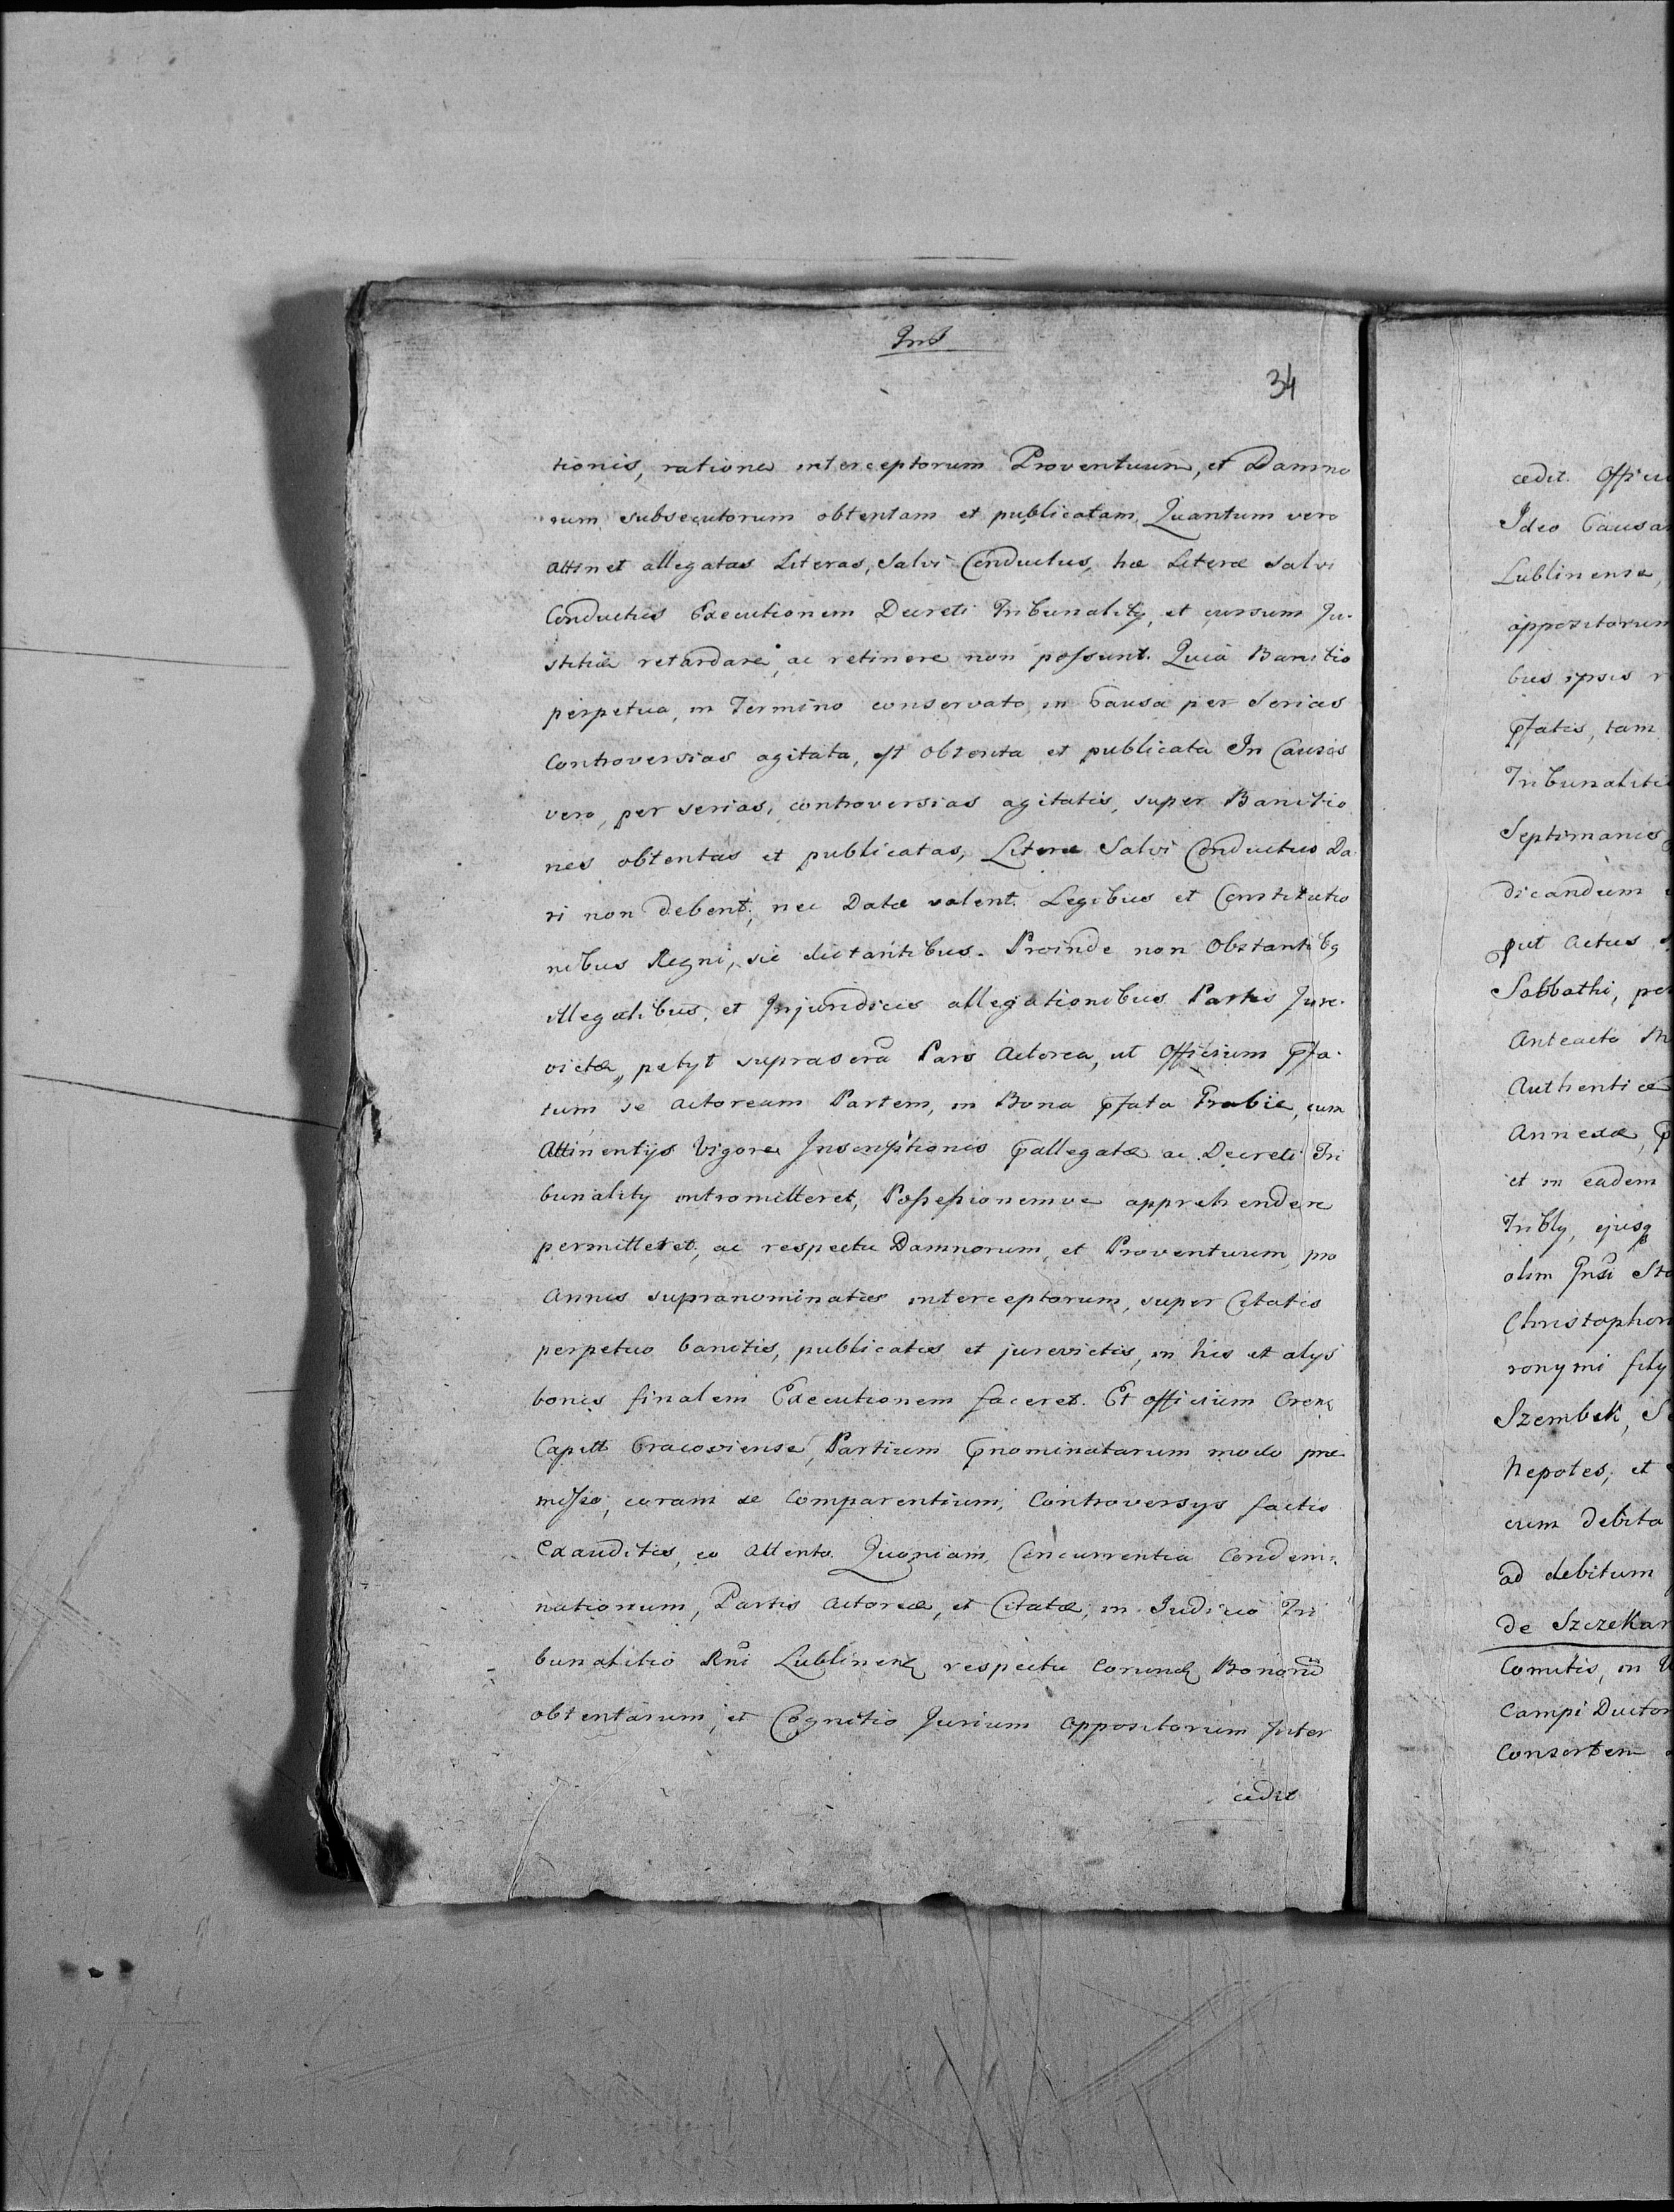 34
tionis, ratione interceptorum Proventuum, et Damno
rum subsecutorum obtentam et publicatam. Quantum vero
attinet allegatas Literas, Salvi Conductus, hæ Literæ Salvi
Conductus Executionem Decreti Tribunality, et cursum Ju-
stitiæ retardare, ac retinere non possunt. Quia Banitio
perpetua, in Termino conservato, in Causa per Serias
Controversias agitata, est obtenta et publicata In Causis
vero, per serias, controversias agitatis, super Banitio
nes obtentas et publicatas, Literæ Salvi Conductus Da
ri non debent, nec Datæ valent. Legibus et Constitutio
nibus Regni, sic dictantibus. Proinde non Obstantibq
illegalibus, et Injuridicis allegationibus Partis Jure-
victæ, petyt suprascra Pars Actorea, ut Officium pfa-
tum se Actoream Partem, in Bona pfata Grabie, cum
Attinentijs Vigore Inscriptionis pallegatæ ac Decreti Tri
bunality intromitteret, Possessionemve apprehendere
permitteret, ac respectu Damnorum, et Proventuum, pro
Annis supranominatis interceptorum, super Citatis
perpetuo banitis, publicatis et jurevictis, in his et alys
bonis finalem Executionem faceret. Et officium Crense
Capitt Cracoviense, Partium pnominatarum modo præ
misso, coram se Comparentium, Controversys factis
Exauditis, eo Attento. Quoniam, Concurrentia Condem-
nationum, Partis Actoreæ, et Citatæ, in Judicio Tri
bunalitio Rni Lublinen respectu Eorund Bonorū
obtentarum, et Cognitio Jurium Appositorum Inter
cedit
cedit. Officiu
Ideo Causa
Lublinense,
appositorum
bus ipsis
pfatis, tam
Tribunaliti
Septimanis
dicandum
put Actus
Sabbathi, pe
Anteacto
Authentice
Annexæ,
et in eadem
Tribly, ejusq
olim Gnsi Sta
Christophor
ronymi fily
Szembek, S
Nepotes, et
cum debita
ad debitum
de Szczekar
Comitis, in
Campi Ductor
Consortem